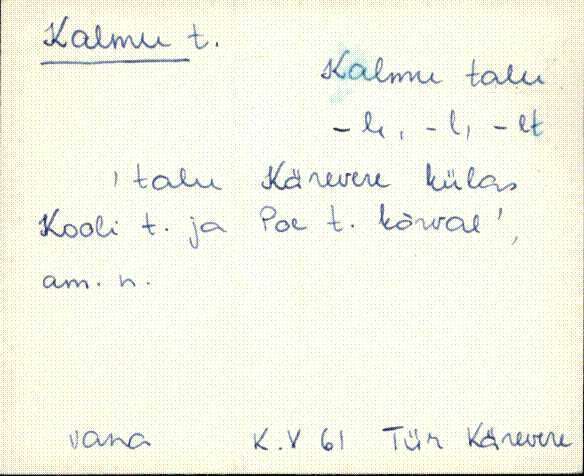 Kalmu t.
Kalmu talu
-le, -l, -lt
'talu Kärevere külas
Kooli t. ja Poe t. kõrval',
am. n.
vana K.V 61 Tür Kärevere